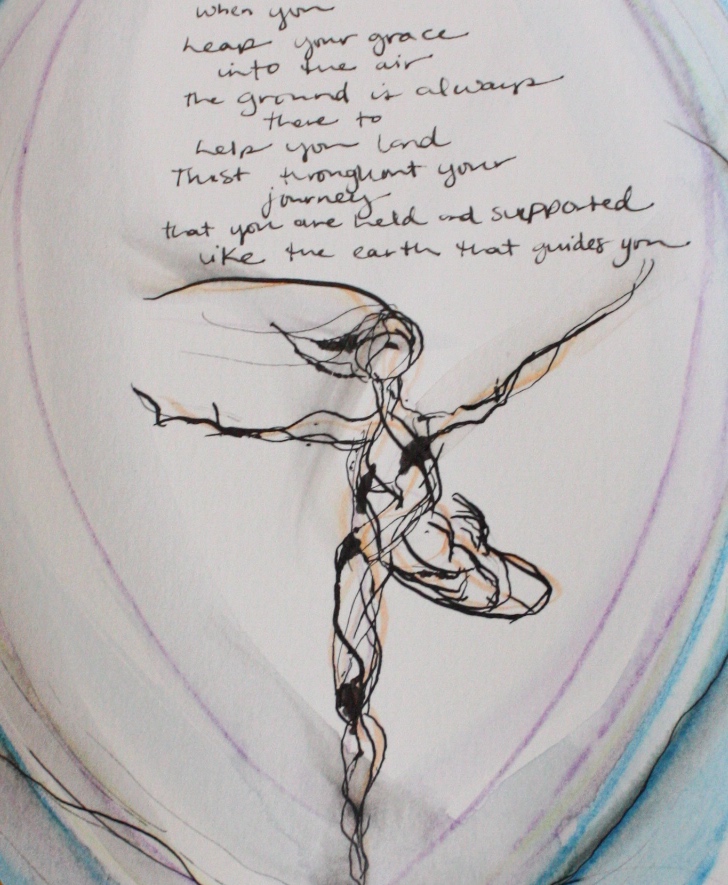 when you
leap your grace
into the air
the ground is always
there to
help you land
Trust throughout your
journey
that you are held and supported
like the earth that guides you